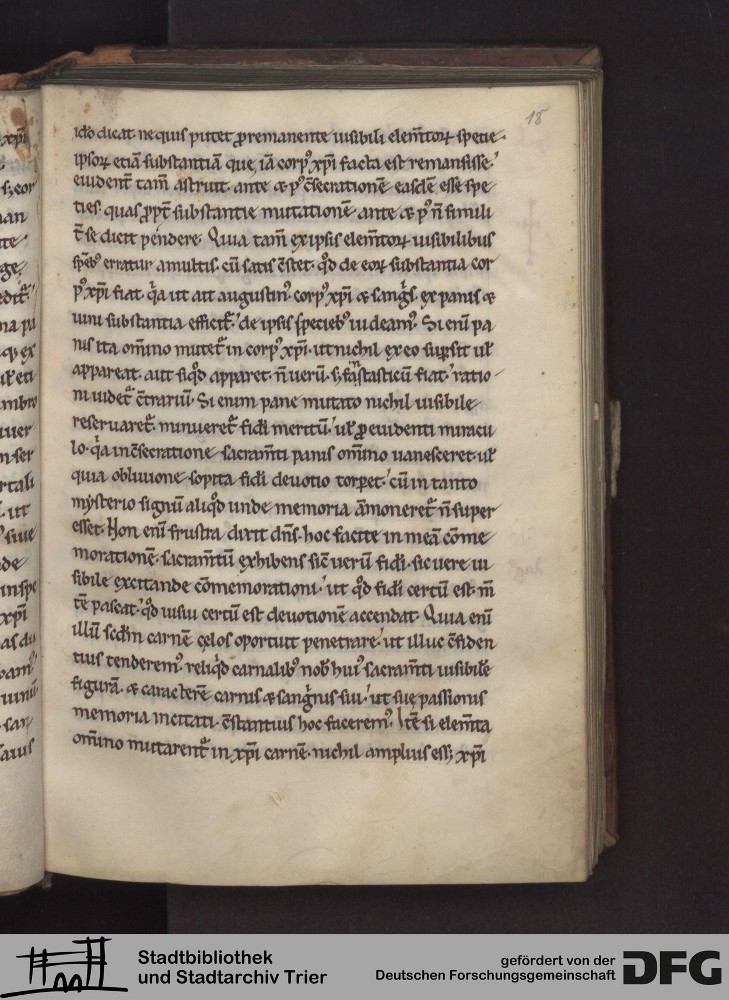 18
idō dicat ne quis putet ꝓ remanente uisibili elem̄toꝝ specie
ipsoꝝ etiā substantiā que iā corp᷒ xp̄i facta est remansisse.
euident̄ tam̄ astruit. ante & p᷒ c̄secrationē easdē esse spe
cies. quas ꝓpt̄ substantie mutationē ante & p᷒ n̄ simili
t̄ se dicit pendere. Quia tam̄ ex ipsis elem̄toꝝ uisibilibus
speb᷒ erratur a multis. cū satis c̄stet. qd̄ de eoꝝ substantia cor
p᷒ xp̄i fiat. q̓a ut ait augustin᷒. corp᷒ xp̄i & sang̓s. ex panis &
uini substantia efficit̄. de ipsis specieb᷒ uideam᷒. Si eni pa
nis ita om̄ino mutet̄ in corp᷒ xp̄i. ut nichil ex eo suꝑsit ul̄
appareat. aut siqd̄ apparet. n̄ uerū. s; fantasticū fiat. ratio
ni uidet̄ c̄trariū. Si enim pane mutato nichil uisibile
reseruaret̄. minueret̄ fidi meritū. ul̄ ꝓ euidenti miracu
lo. q̓a in c̄secratione sacram̄ti panis om̄ino uanesceret. ul̄
quia obliuione sopita fidi deuotio torꝑet. cū in tanto
mysterio signū aliqd̄ unde memoria āmoneret̄ n̄ super
esset. Non enī frustra dixit dn̄s. hoc facite in meā cōme
morationē. sacram̄tū exhibens sic̄ uerū fidi. sic uere ui
sibile excitande cōmemorationi. ut qd̄ fidi certū est. m̄
tē pascat. qd̄ uisui certū est deuotionē accendat. Quia enī
illū scd̄m carnē cęlos oportuit penetrare. ut illuc c̄fiden
tius tenderem᷒. reliqd̄ carnalib᷒ nob̄ hui᷒ sacram̄ti uisibile
figurā. & caracterē carnis & sang̓nis sui. ut suę passionis
memoria incitati. c̄stantius hoc facerem᷒. Itē si elem̄ta
om̄ino mutarent̄ in xp̄i carnē. nichil amplius ess; xp̄i
Stadtbibliothek
und Stadtarchiv Trier
gefördert von der
Deutschen Forschungsgemeinschaft
DFG